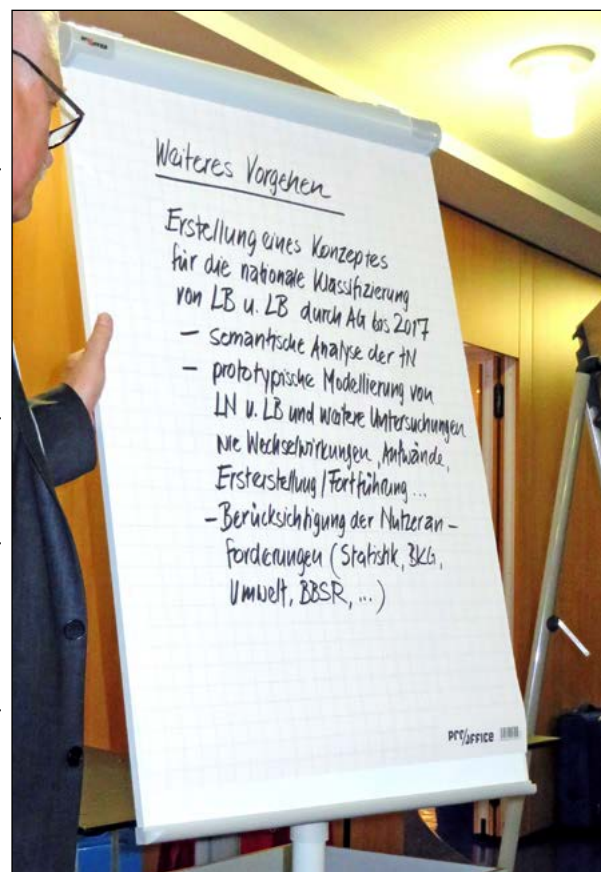 Weiteres Vorgehen
Erstellung eines Konzeptes
für die nationale Klassifizierung
von LB u. LB durch AG bis 2017
– semantische Analyse der tN
– prototypische Modellierung von
LN u. LB und weitere Untersuchungen
wie Wechselwirkungen, Aufwände,
Ersterstellung/Fortführung...
– Berücksichtigung der Nutzeran–
forderungen (Statistik, BKG,
Umwelt, BBSR, ...)
pro/office